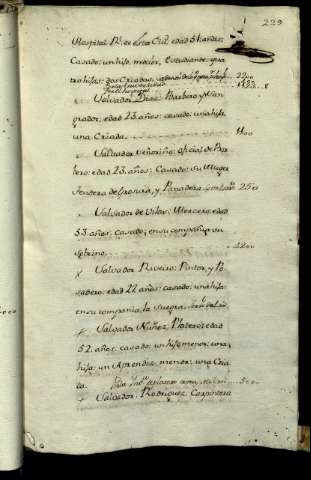 229
Hospital Rl. de esta Ciu. edad 51 años:
Casado: un hijo menór, Estudiante, qua
tro hijas: dos Criadas, 2200
1133
Salvador Diaz Barbero y San
grador, edad 23. años: casado: una hija
una Criada. 1100
Salvador Señoriño oficial de
tero: edad 23. años: Casado; su Muger
tendera de Grosura, y Panadera 250
Salvador de Vilas, Mercero edad
53. años, Casado; en su compañia un
Sobrino. 2200
x Salvador Riveiro Pintor, y Po
sadero: edad 22 años: casado: una hija
en su compania, la suegra.
x Salvador Nuñez Platero: edad
52. años: casado: un hijo menor: una
hija: un Aprendiz menor: una Cria
da. 500
x Salvador Rodriguez Carpintero